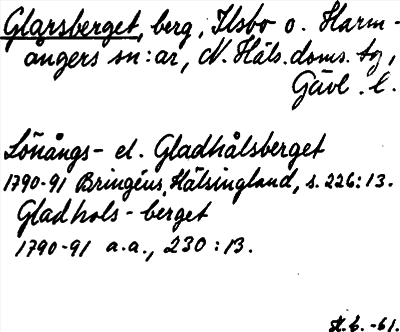 Glarsberget, berg, Ilsbo o. Harm-
ångers sn:ar, N. Häls. doms. tg,
Gävl. l.
Lönångs- el. Gladhålsberget
1790-91 Bringéus, Hälsingland, s. 226:13.
Gladhols-berget
1790-91 a.a., 230:13.
-61.